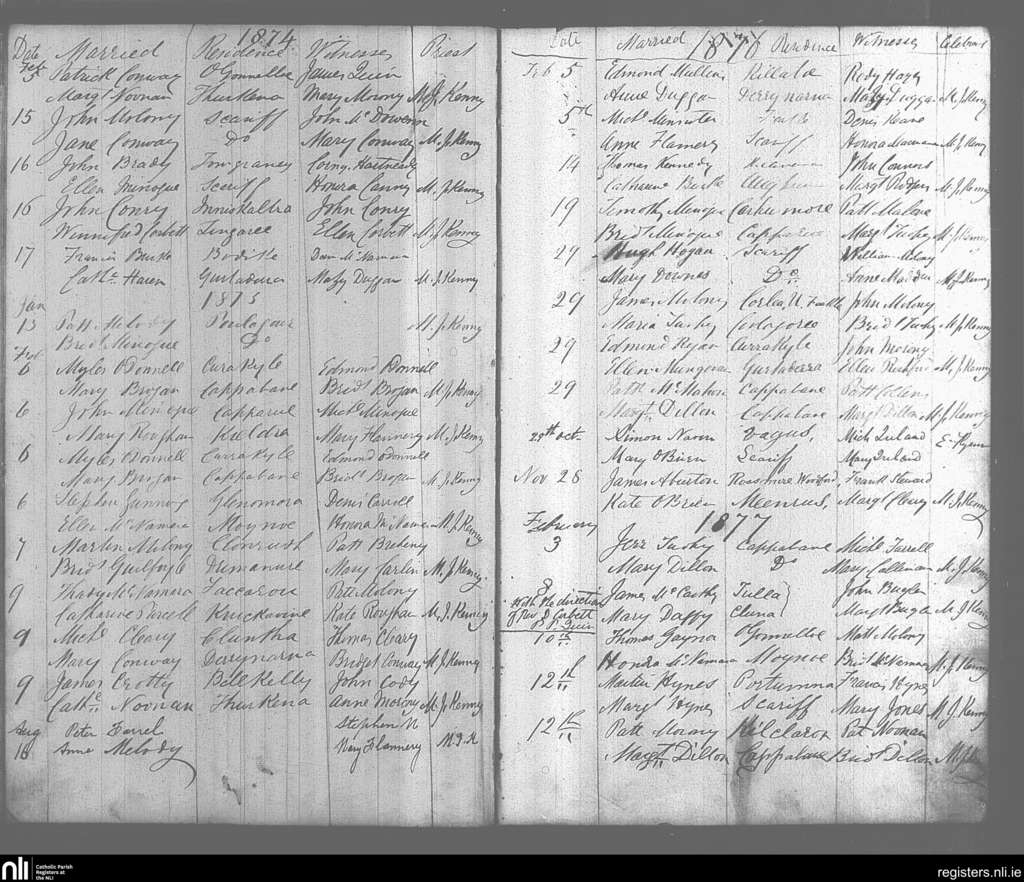 1874
Date Married Residence Witnesses Priest
Feb
5 Patrick Conway O'Gonnelloe James Quin
Margt Noonan Thurkena Mary Morony M. J. Kenny
15 John Molony Scariff John Mc
Jane Conway Do Mary Conway M. J. Kenny
16 John Brady Tomgraney
Ellen Minogue Scariff Honora Canny M. J. Kenny
16 John Conry Inniskaltra John Conry
Winnefred Corbett Lingaree Ellen Corbett M. J. Kenny
17 Francis Burke Bodike Dan McNamara
Cathe Haren Gurtaderra Mary Duggan M. J. Kenny
Jan 1875
13 Patt Melody Poulagour M. J. Kenny
Bridt Minogue Do
Feb
6 Myles O'Donnell Curakyle Edmond O'Donnell
Mary Brogan Cappabane Bridt Brogan M. J. Kenny
6 John Minogue Capparue Michl Minogue
Mary Roughan Kieldra Mary Flannery M. J. Kenny
6 Myles O'Donnell Currakyle Edmond O'Donnell
Mary Brogan Cappabane Bridt Brogan M. J. Kenny
6 Stephen Gunnog Glenomora Denis Carroll
Ellen McNamara Moynoe Honora McNamara M. J. Kenny
7 Martin Molony Clonrush Patt
Bridt Guilfoyle Drimanure Mary M. J. Kenny
9 Thady McNamara Faccarou Patt Molony
Catharine Knockavine Kate Roughan M. J. Kenny
9 Michl Cleary Cluntha Thomas Cleary
Mary Conway Derrynarna Bridget Conway M. J. Kenny
9 James Crotty Billkelly John Cody
Cathe Noonan Thurkena Anne Morony M. J. Kenny
Aug Peter Farrel Stephen N
18 Anne Melody Mary Flannery M. J. K
Date Married 1876 Residence Witnesses Celebrant
Feb 5 Edmond Mullen Killaloe Rody Hogan
Anne Duggan Derrynarna Mary Duggan M. J. Kenny
5th Michl Minister Denis Keane
Anne Flannery Scariff Honora M. J. Kenny
14 Thomas Kennedy John Connors
Catharine Burke Margt Rodgers M. J. Kenny
19 Timothy Minogue Corkumore Patt Malone
Bridt Minogue Capparoe Margt Tuohy M. J. Kenny
29 Hugh Hogan Scariff William Molony
Mary Downes Do Anne Madden M. J. Kenny
29 James Molony Corlea, U. Feakle John Molony
Maria Tuohy Coolagoree Bridt Tuohy M. J. Kenny
29 Edmond Ryan Currakyle John Morony
Ellen Mungovan Gurtaderra Ellen M. J. Kenny
29 Patt McMahon Cappabane Patt Collins
Margt Dillon Cappabane Margt Dillon M. J. Kenny
28th Oct. Simon Naven Dagus, Mich Ireland
Mary O'Brien Scariff Mary Ireland
Nov 28 James Aburton Rossmore Wexford Frank Steward
Kate O'Brien Meenrus, Margt Cleary M. J. Kenny
February 1877
3 Jerr Tuohy Cappabane Michl Farrell
Mary Dillon Do Mary Callanan M. J. Kenny
8 James McCarthy Tulla John Bugler
With the direction of Rev. D. Corbett P.P. Quin Mary Daffy Cluna Margt Bugler M. J. Kenny
10th Thomas Gayna O'Gonnelloe Matt Molony
Honora McNamara Moynoe Bridt McNamara M. J. Kenny
12th Martin Hynes Portumna Francis Hynes
Margt Hynes Scariff Mary Jones M. J. Kenny
12th Patt Morony Kilclaron Pat Noonan
Margt Dillon Cappabane Bridt Dillon M. J. K
nli Catholic Parish
Registers at
the NLI
registers.nli.ie